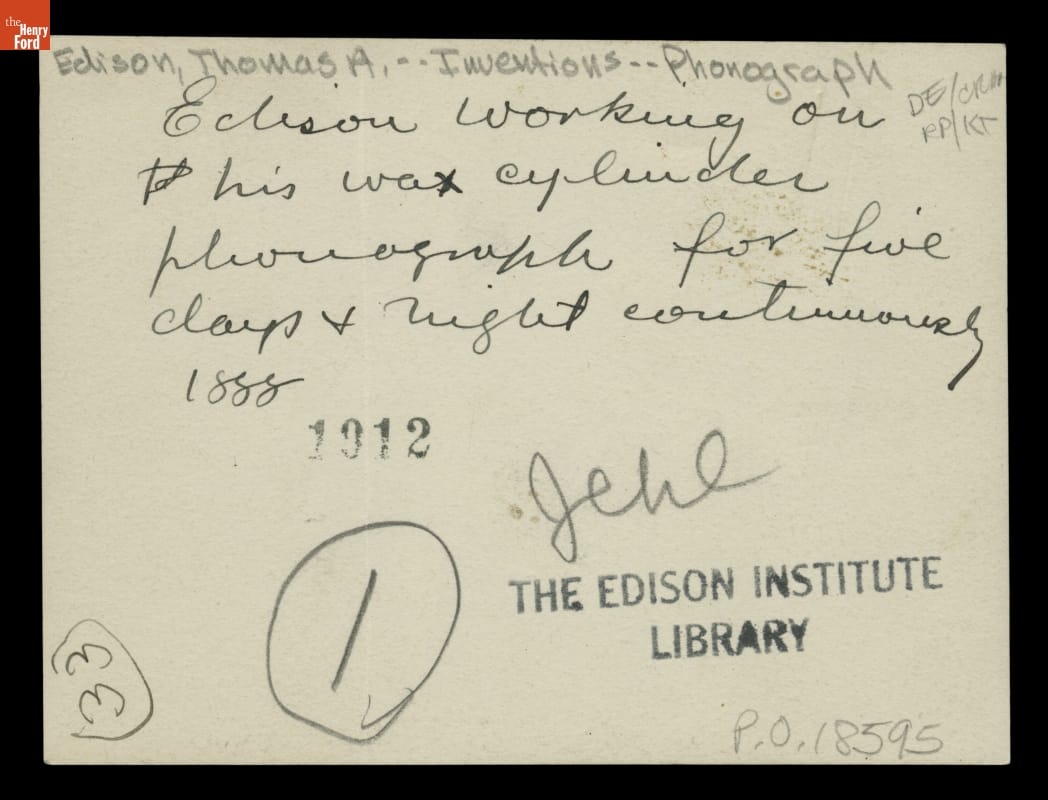 the
Henry
Ford
Edison, Thomas A. -- Inventions -- Phonograph
DE/CRM
RP/KT
Edison working on
his wax cylinder
phonograph for five
days & night continuously
1888
1912
Jehl
1
THE EDISON INSTITUTE
LIBRARY
33
P.O. 18595